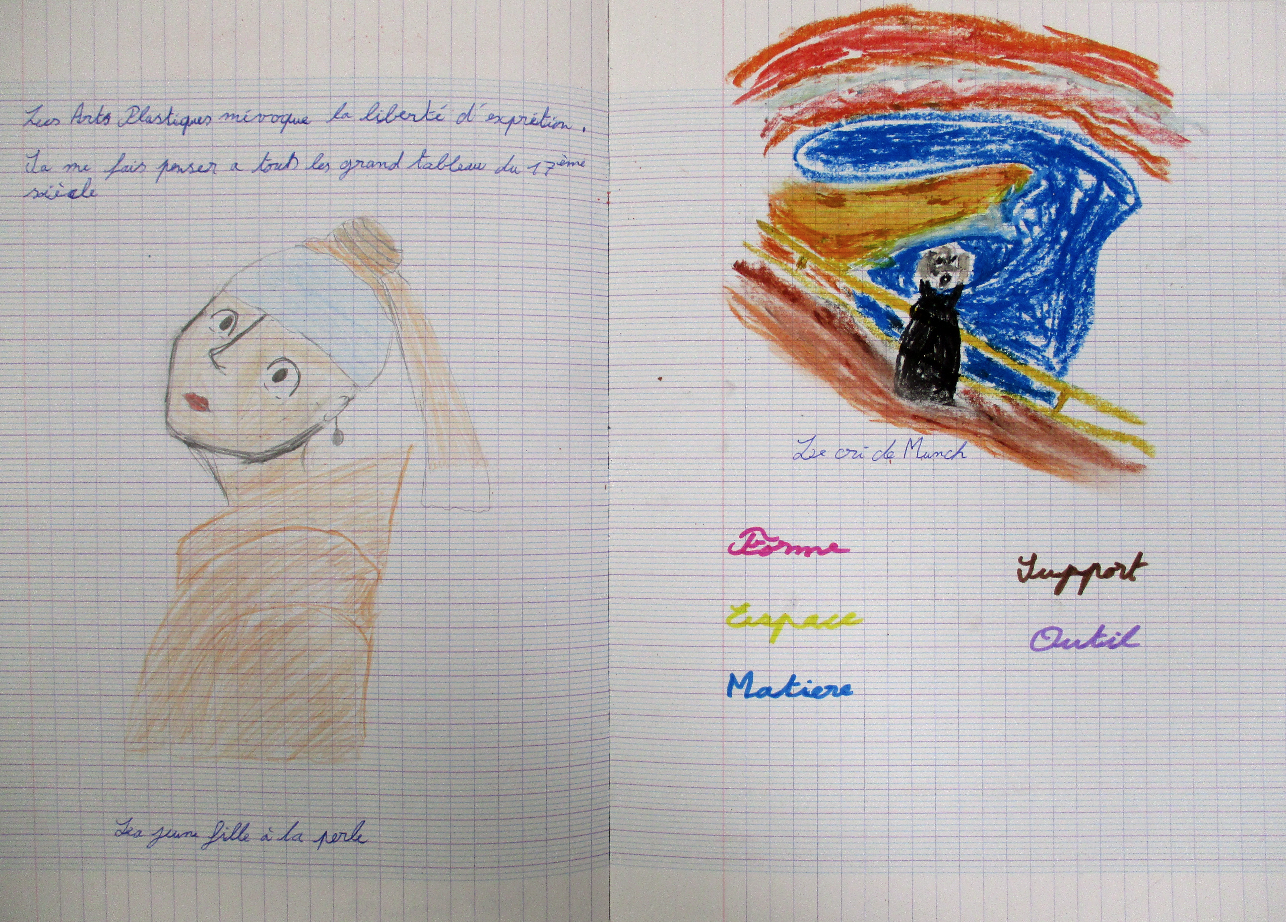 Les Arts Plastiques m'évoque la liberté d'exprétion.
Sa me fais penser a tout les grand tableau du 17ème
siècle
La jeune fille à la perle
Le cri de Munch
Forme
Support
Espace
Outil
Matiere